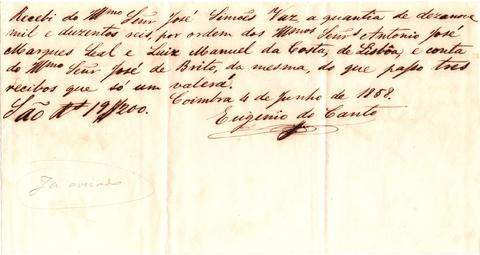 Recebi do Illmo Snr. José Simões Vaz a quantia de dezanove
mil e duzentos reis, por ordem dos Illmos Snrs. Antonio José
Marques Leal e Luiz Manuel da Costa, de Lisbôa, e conta
do Illmo Snr. José de Brito, da mesma, do que passo tres
recibos que só um valerá.
Coimbra 4 de Junho de 1858.
São Rs 19$200.
Eugenio do Canto
Ja